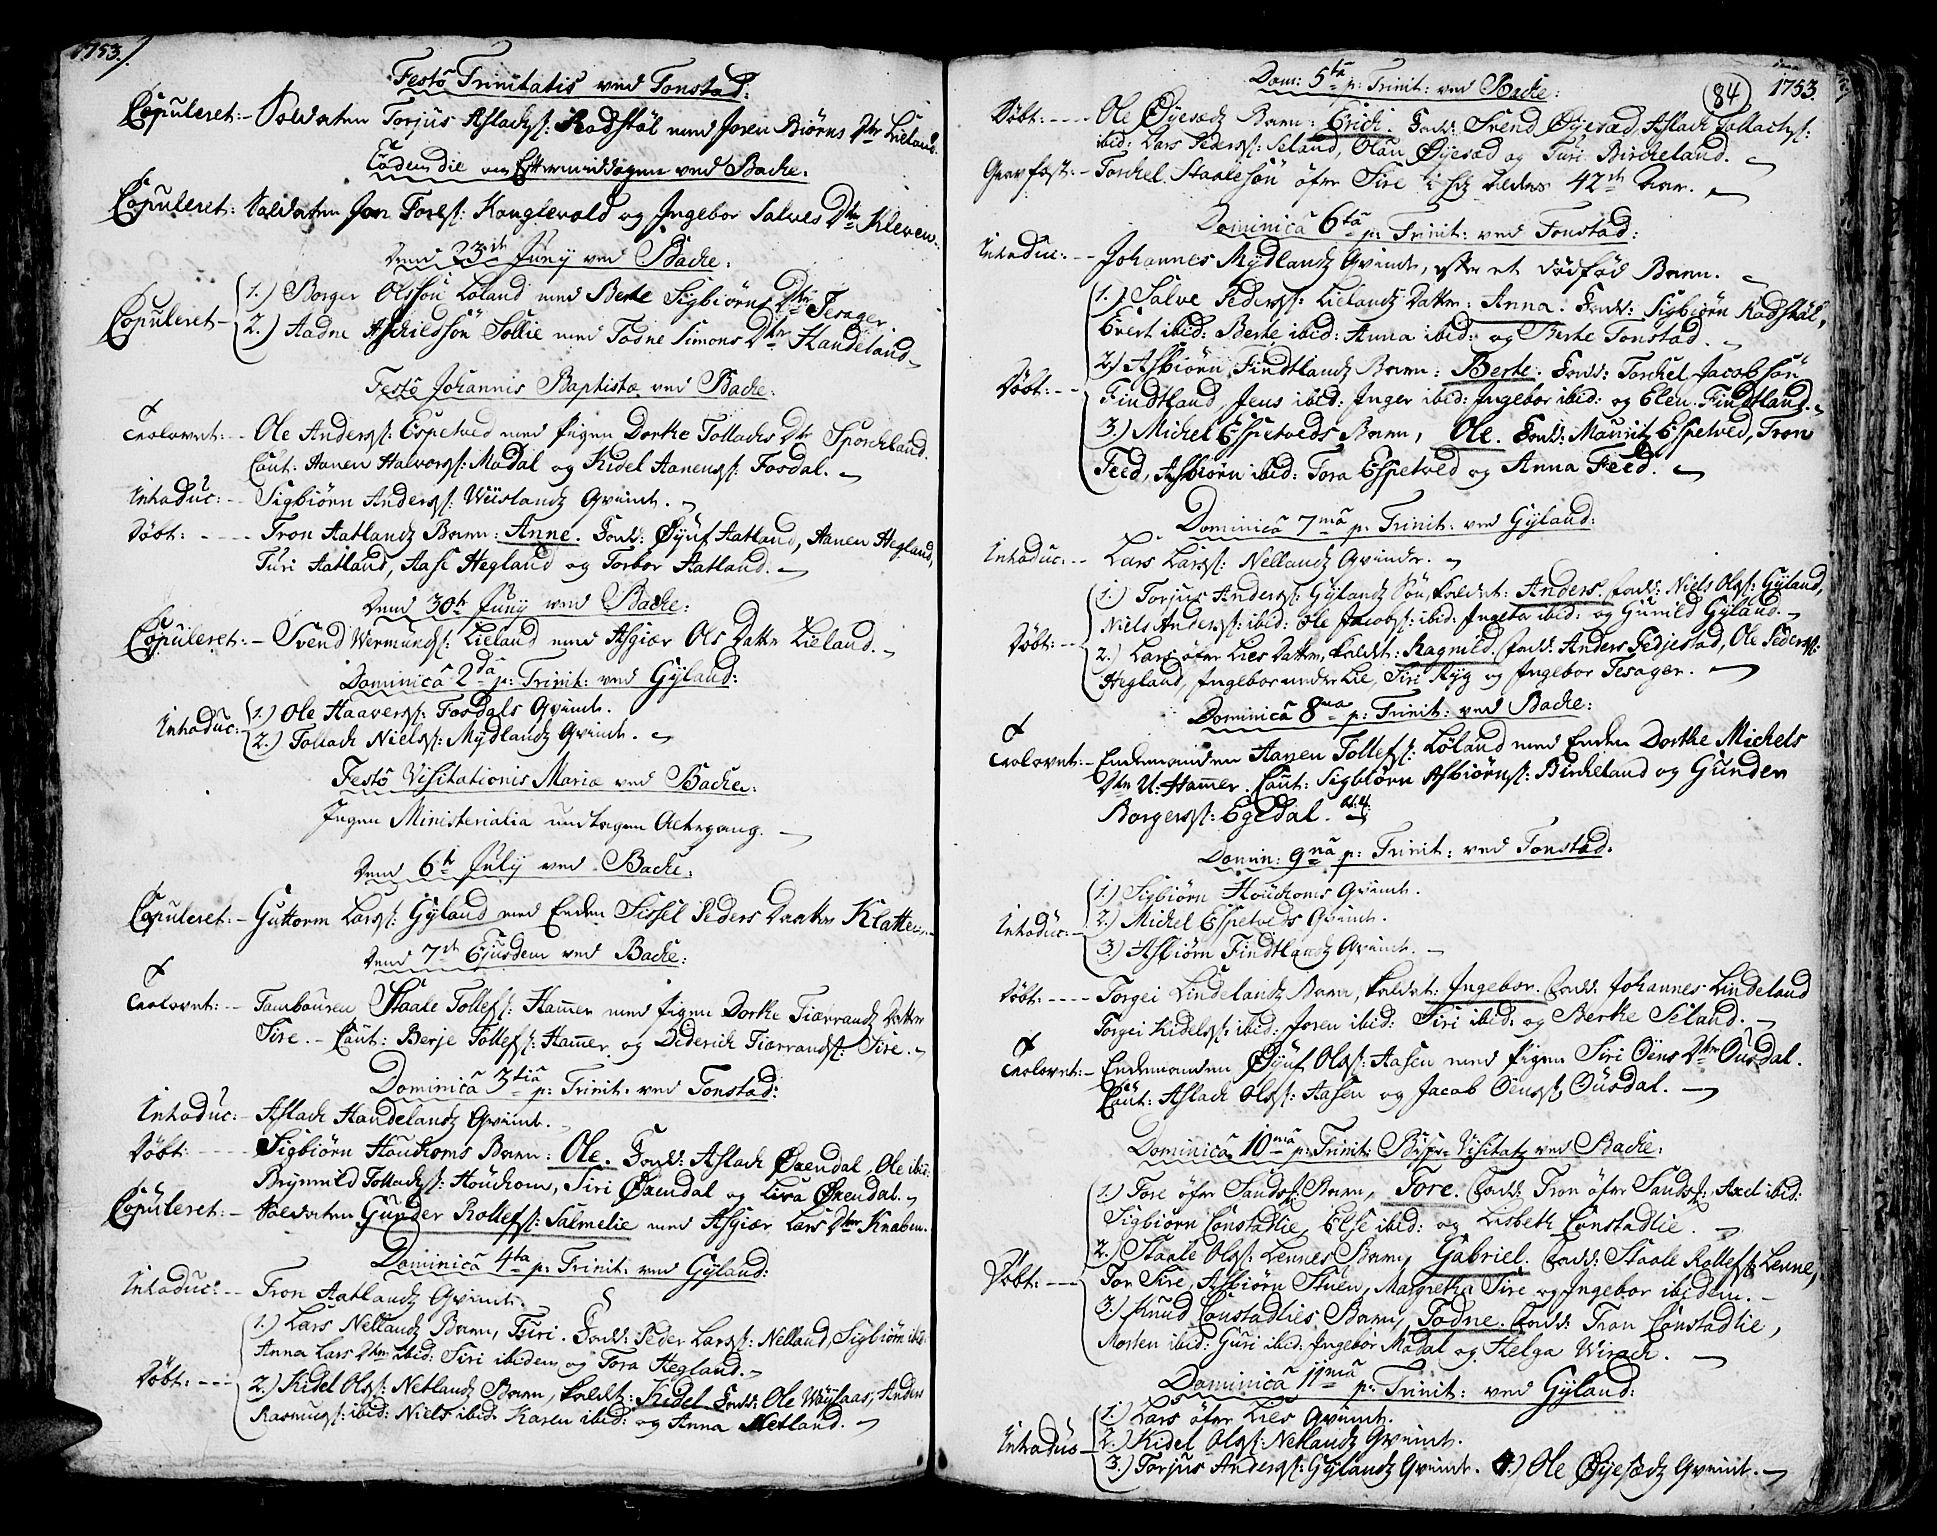 1753.
Festo Trinitatis ved Tonstad:
Copuleret:- Soldaten Torjus Aslachs: Rødstøl med Joren Biørns Dtr Lieland.
Eodem die om Eftermiddagen ved Backe.
Copuleret: Soldaten Jon Tores: Konglevold og Ingebor Salves Dtr Kleven.
Dend 23de Juny ved Backe:
Copuleret- 1.) Borger Olssøn Løland med Berte Sigbiørns Dtr Tesager.
2.) Aadne Sollie med Todne Simons Dtr Handeland.
Festo Johannis Baptistæ ved Backe:
Trolovet:-- Ole Anders: Espetved med Pigen Dorthe Tollachs Dtr Sporchland.
Caut: Aanen Halvors: Mødal og Kidel Aanens: Fosdal.
Introduc:-- Sigbiørn Anders: Qvinde.
Døbt: ---- Tron Aatlands Barn: Anne. Fadd: Øynf Aatland, Aanen Hegland,
Turi Aatland, Aase Hegland og Torbor Aatland.
Dend 30te Juny ved Backe:
Copuleret:- Svend Wermunds: Lieland med Asgiær Ols Datter Lieland.
Dominica 2da p: Trinit: ved Gyland:
Introduc: 1.) Ole Haavers: Fosdals Qvinde.
2.) Tollach Niels: Mydlands Qvinde.
Festo Visitationis Mariæ ved Backe:
Ingen Ministerialia undtagen Altergang.
Dend 6te July ved Backe:
Copuleret:- Guttorm Lars: Gyland med Enken Sissel Peders Datter Klatten.
Dend 7de Ejusdem ved Backe:
Trolovet:-- Tambouren Staale Tollefs: Hamer med Pigen Dorthe Tiærrands Datter
Sire.- Caut: Berje Tollefs: Hamer og Diderich Tiærrands: Sire.
Dominica 3tia p: Trinit: ved Tonstad:
Introduc:- Aslach Handelands Qvinde.
Døbt: ---- Sigbiørn Houchoms Barn: Ole. Fadd: Aslach Øxendal, Ole ibid:
Brynnild Tollachs: Houchom, Siri Øxendal og Liva Øxendal.
Copuleret:- Soldaten Gunder Rollefs: Salmelie med Asgiær Lars Dtr Knaben.
Dominica 4ta p: Trinit: ved Gyland:
Introduc:-- Tron Aatlands Qvinde.
1.) Lars Nellands Barn, Siri. Fadd: Peder Lars: Nelland, Sigbiørn ibid:
Anna Lars Dtr ibid: Siri ibidem og Tora Hegland.
Døbt: --- 2.) Kidel Ols: Netlands Barn, kaldet: Kidel. Fadd: Ole Anders
Rasmus: ibid: Niels ibid: Karen ibid: og Anna Netland.
84
1753.
Dom: 5ta p: Trinit: ved Backe:
Døbt:---- Ole Øyesæds Barn: Erich. Fadd: Svend Øyesæd, Aslach Tollachs:
ibid: Lars Peders: Seland, Olau Øyesæd og Turi Bircheland.
Gravfæst:- Torchel Staalesøn øfre Sire i sit Alders 42de Aar.
Dominica 6ta p: Trinit: ved Tonstad:
Introduc:-- Johannes Mydlands Qvinde, efter et dødfød Barn.
1.) Salve Peders: Lielands Datter: Anna. Fadd: Sigbiørn Rødstøl,
Evert ibid: Berte ibid: Anna ibid: og Berte Tonstad.
Døbt:-- 2.) Asbiørn Findtlands Barn: Berte. Fadd: Torchel Jacobsøn
Findtland, Jens ibid: Inger ibid: Ingebor ibid: og Elen Findtland.
3.) Michel Espetveds Barn, Ole. Fadd: Mauritz Espetved, Tron
Feed, Asbiørn ibid: Tora Espetved og Anna Feed.
Dominica 7ma p: Trinit: ved Gyland:
Introduc:-- Lars Lars: Nellands Qvinde.
1.) Torjus Anders: Gylands Søn, kaldet: Anders. Fadd: Niels Ols: Gyland,
Niels Anders: ibid: Ole Jacobs: ibid: Ingeba ibid: og Gunild Gyland.
Døbt:-- 2.) Lars øfre Lies Datter, kaldet: Ragnild. Fadd: Anders Fedjestad, Ole Peders:
Hegland, Ingebor under Lie, Siri Ryg og Ingebor Tesager.
Dominica 8va p: Trinit: ved Backe:
Trolovet:- Enkemanden Aanen Tollefs: Løland med Enken Dorthe Michels
Dtr U: Hamer. Caut: Sigbiørn Asbiørns: Bircheland og Gunder
Borgers: Egedal.
Domin: 9na p: Trinit: ved Tonstad:
1.) Sigbiørn Houchoms Qvinde.
Introduc:- 2.) Michel Espetveds Qvinde.
3.) Asbiørn Findtlands Qvinde.
Døbt:---- Torgei Lindelands Barn, kaldet: Ingebor. Fadd: Johannes Lindeland
Torgei Kidels: ibid: Joren ibid: Siri ibid: og Berthe Seland.
Trolovet:- Enkemanden Øynf Ols: Aasen med Pigen Siri Øens Dtr Ousdal.
Caut: Aslach Ols: Aasen og Jacob Øens: Ousdal.
Dominica 10ma p: Trinit: Bispe-Visitatz ved Backe:
1.) Tore øfre Sands: Barn, Tore. Fadd: Tron øfre Sands: Axel ibid:
Sigbiørn Constadlie, Else ibid: og Lisbeth Constadlie.
2.) Staale Ols: Lennes Barn, Gabriel. Fadd: Staale Rollefs: Lenne,
Døbt: --- Tor Sire, Asbiørn Stuen, Margretha Sire og Ingebor ibidem.
3.) Knud Constadlies Barn, Todne. Fadd: Tron Constadlie,
Morten ibid: Guri ibid: Ingebor Mødal og Helga Wirach.
Dominica 11ma p: Trinit: ved Gyland:
1.) Lars øfre Lies Qvinde.
Introduc- 2.) Kidel Ols: Netlands Qvinde.
3.) Torjus Anders: Gylands Qvinde. 4.) Ole Øyesædz Qvinde.